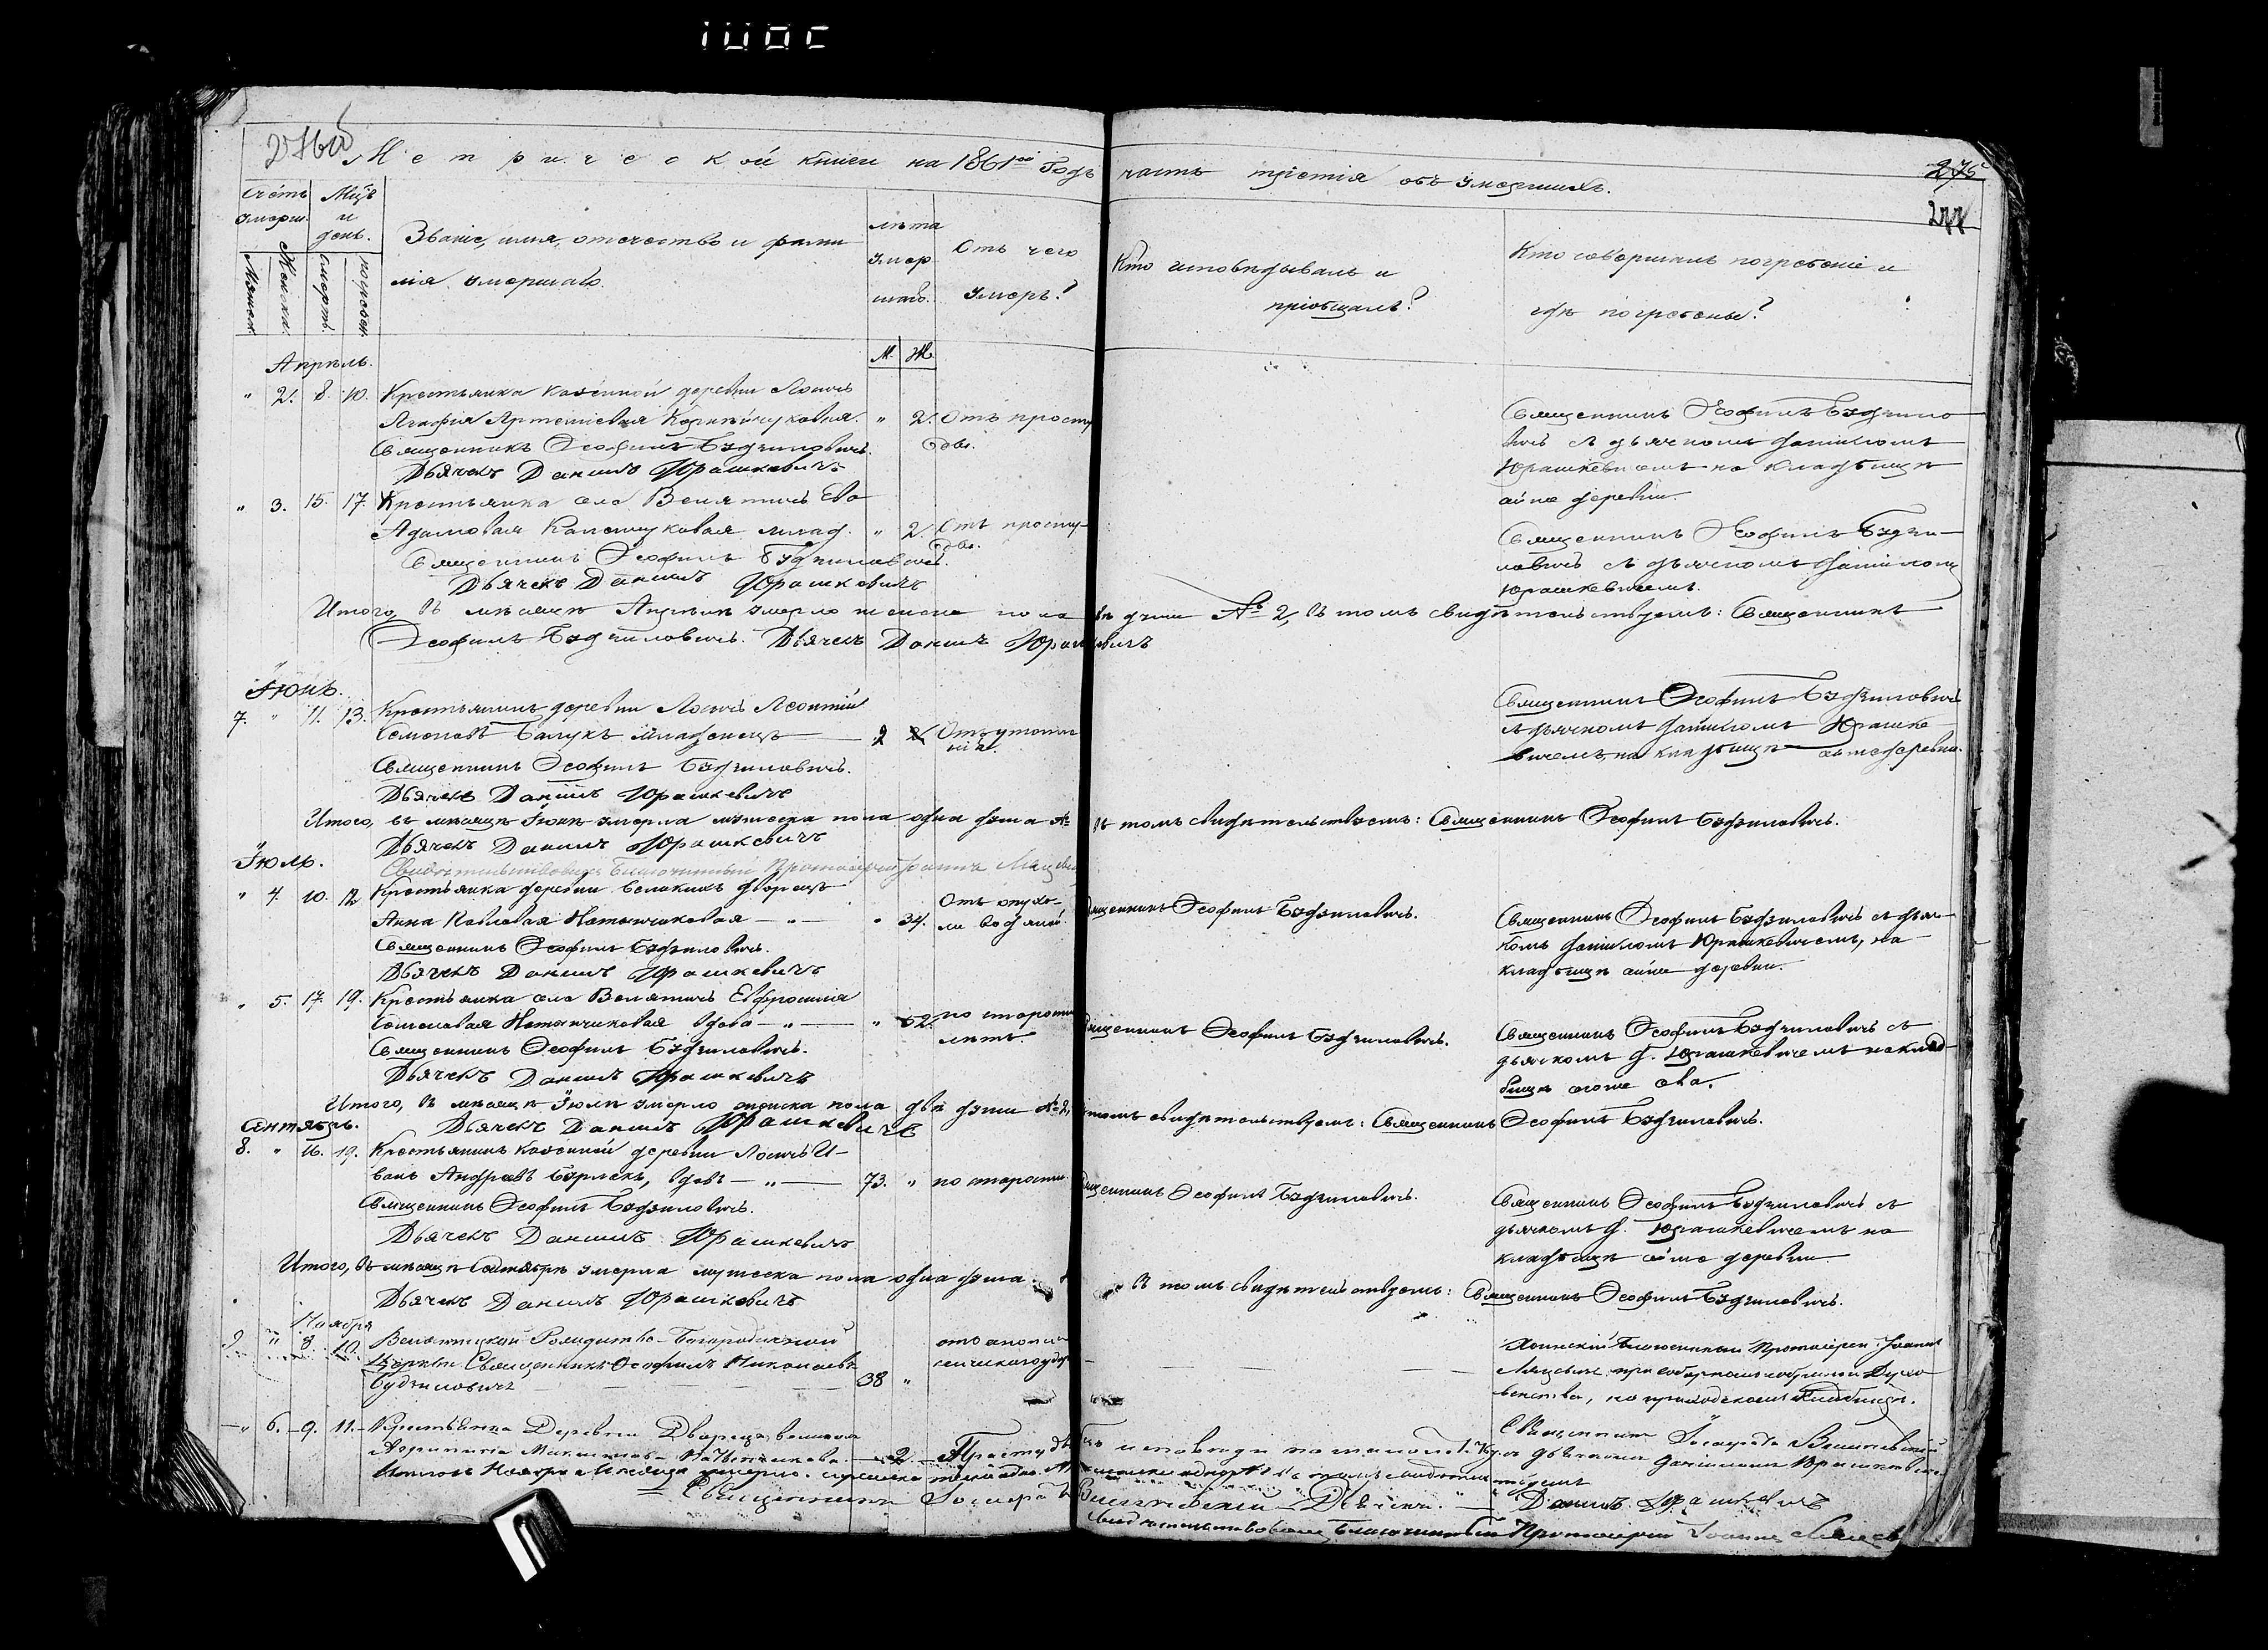 Метрической книги на 1861ый Годъ часть третія объ умершихъ.
275
277
Счетъ умерш.
Мцъ и день.
Званіе, имя, отечество и фами
лія умершаго.
лѣта
умер
шаго.
Отъ чего
умеръ?
Кто исповѣдывалъ и
пріобщалъ?
Кто совершалъ погребеніе и
гдѣ погребены?
Мужеск.
Женска.
смерть.
М. Ж.
Апрѣль.
" 2. 8. 10. Крестьянка казенной деревни Лосичъ
Агафія
" 2. Отъ просту
ды.
Священникъ Ѳеофилъ Будзиловичъ.
Дьячекъ Даніилъ Юрашкевичъ
Священникъ Ѳеофилъ Будзило
вичъ съ дьячкомъ Даніиломъ
Юрашкевичемъ на кладбищѣ
деревни.
" 3. 15. 17. Крестьянка села Велятичъ Ева
Адамовая млад. " 2. Отъ просту-
ды.
Священникъ Ѳеофилъ Будзиловичъ.
Дьячекъ Даніилъ Юрашкевичъ
Священникъ Ѳеофилъ Будзи-
ловичъ съ дьячкомъ Даніиломъ
Юрашкевичемъ.
Итого, въ мѣсяцѣ Апрѣлѣ умерло женска пола двѣ души № 2, въ томъ свидѣтельствуемъ: Священникъ
Ѳеофилъ Будзиловичъ. Дьячекъ Даніилъ Юрашкевичъ
Іюнь.
7. " 11. 13. Крестьянинъ деревни Лосичъ Леонтій
Семеновъ Балукъ младенецъ 2 Отъ утопле
нія.
Священникъ Ѳеофилъ Будзиловичъ.
Дьячекъ Даніилъ Юрашкевичъ
Священникъ Ѳеофилъ Будзиловичъ
съ дьячкомъ Даніиломъ Юрашке
вичемъ, на кладбищѣ деревни.
Итого, въ мѣсяцѣ Іюнѣ умерла мужеска пола одна душа № въ томъ свидѣтельствуемъ: Священникъ Ѳеофилъ Будзиловичъ.
Дьячекъ Даніилъ Юрашкевичъ
Іюль.
Свидѣтельствовалъ Благочинный Протоіерей
" 4. 10. 12 Крестьянка деревни Великихъ Дворецъ
Анна Павловая " 34. Отъ опухо-
ли водяной.
Священникъ Ѳеофилъ Будзиловичъ.
Дьячекъ Даніилъ Юрашкевичъ
Священникъ Ѳеофилъ Будзиловичъ.
Священникъ Ѳеофилъ Будзиловичъ съ дьяч-
комъ Даніиломъ Юрашкевичемъ, на
кладбищѣ деревни.
" 5. 17. 19. Крестьянка села Велятичъ Евфросинія
Семеновая вдова " по старости
лѣтъ.
Священникъ Ѳеофилъ Будзиловичъ.
Дьячекъ Даніилъ Юрашкевичъ
Священникъ Ѳеофилъ Будзиловичъ.
Священникъ Ѳеофилъ Будзиловичъ съ
дьячкомъ Д. Юрашкевичемъ на клад-
бищѣ
Итого, въ мѣсяцѣ Іюлѣ умерло женска пола двѣ души № 2, въ томъ свидѣтельствуемъ: Священникъ Ѳеофилъ Будзиловичъ.
Дьячекъ Даніилъ Юрашкевичъ
Сентябрь.
8. " 16. 19. Крестьянинъ казенной деревни Лосичъ И-
ванъ Андреевъ Бурлакъ, вдовъ 73. " по старости
Священникъ Ѳеофилъ Будзиловичъ.
Дьячекъ Даніилъ Юрашкевичъ
Священникъ Ѳеофилъ Будзиловичъ.
Священникъ Ѳеофилъ Будзиловичъ съ
дьячкомъ Д. Юрашкевичемъ на
кладбищѣ деревни.
Итого, въ мѣсяцѣ Сентябрѣ умерла мужеска пола одна душа въ томъ свидѣтельствуемъ: Священникъ Ѳеофилъ Будзиловичъ.
Дьячекъ Даніилъ Юрашкевичъ
Ноября
9. " 8. 10. Велятицкой Рождество-Богородичной
Церкви Священникъ Ѳеофилъ Николаевъ
Будзиловичъ 38 "
отъ апопле
ксическаго удара
Благочинный Протоіерей Іоаннъ
при соборномъ собраніи Духо
венства, на приходскомъ кладбищѣ.
" 6. 9. 11. Крестьянка Деревни Дворецъ великихъ
2 Простуды
Священникъ
съ дьячкомъ Даніиломъ Юрашкевичемъ
Священникъ Дьячекъ Даніилъ Юрашкевичъ
Свидѣтельствовалъ Благочинный Протоіерей Іоаннъ